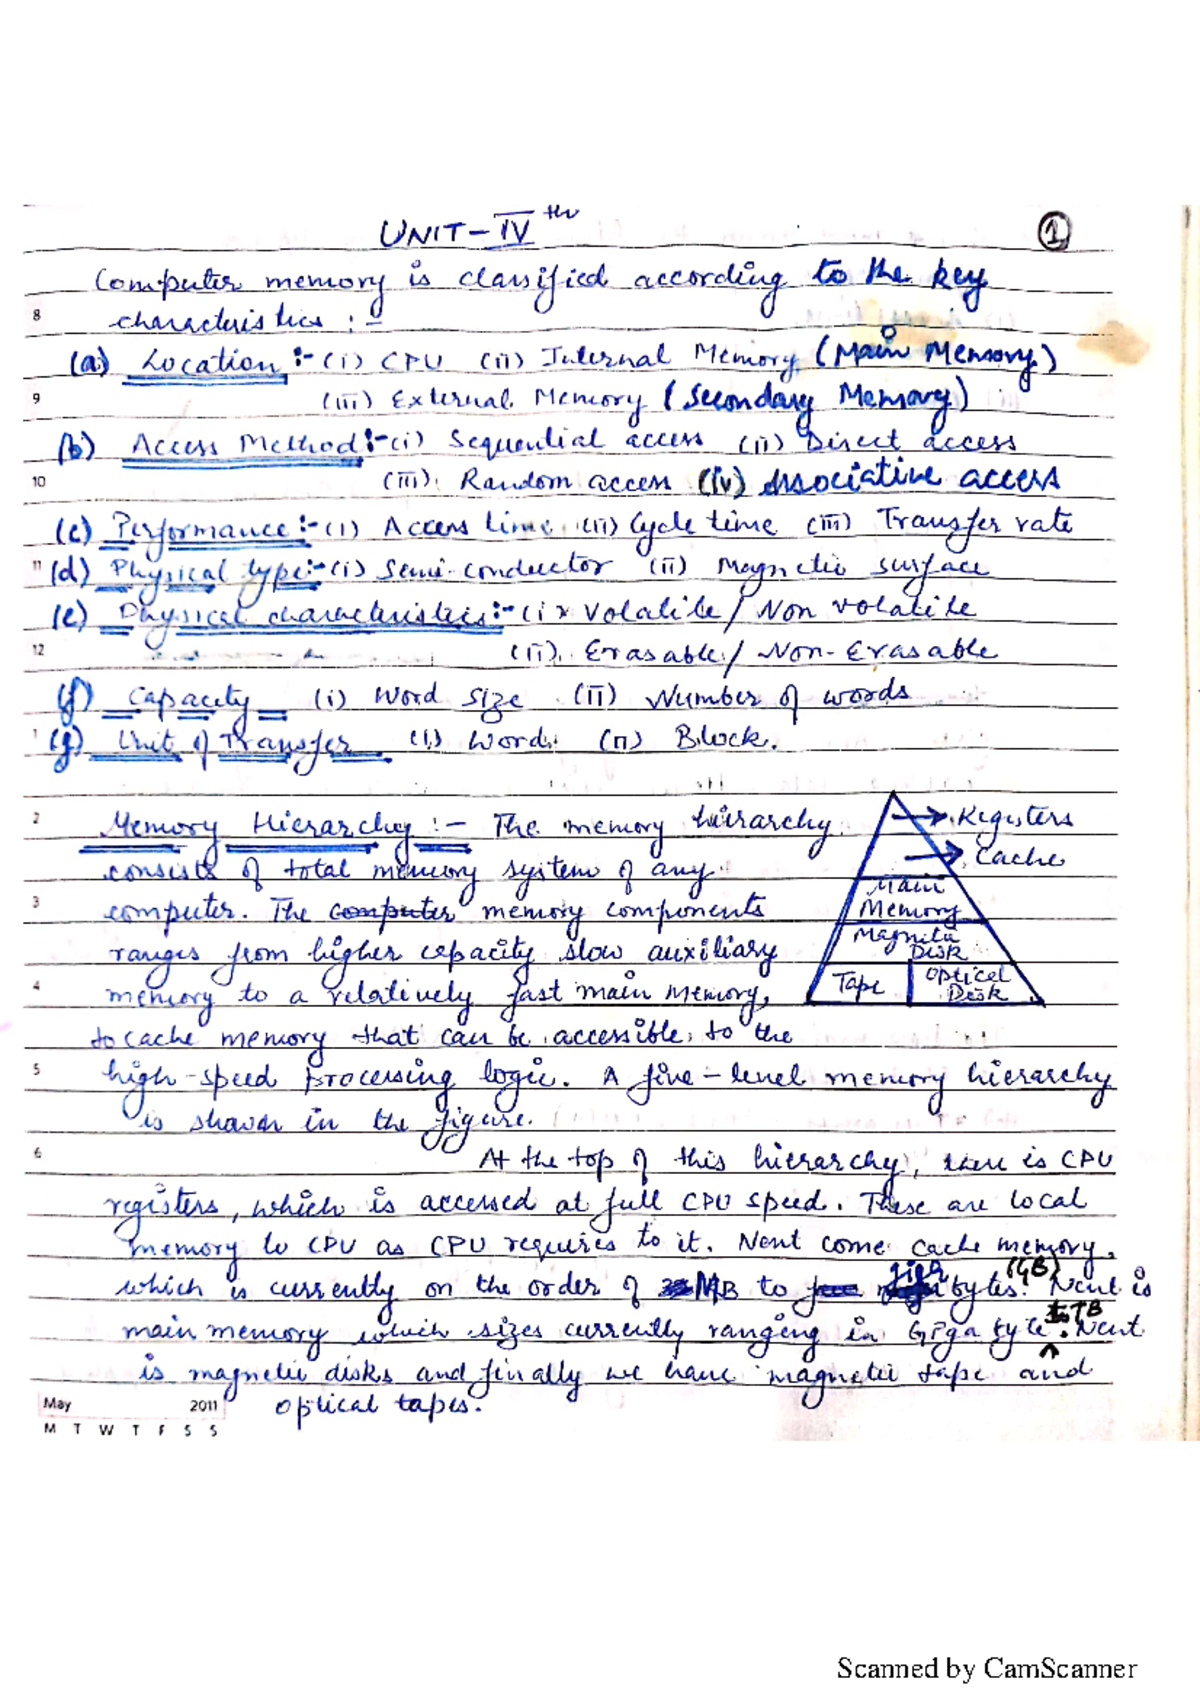 UNIT-IVth
1
Computer memory is classified according to the key
8
characteristics :-
(a) Location :- (i) CPU (ii) Internal Memory (Main Memory)
9
(iii) External Memory (Secondary Memory)
(b) Access Method :- (i) Sequential access (ii) Direct access
10
(iii) Random access (iv) Associative access
(c) Performance :- (i) Access time (ii) Cycle time (iii) Transfer rate
11
(d) Physical type :- (i) Semi-conductor (ii) Magnetic surface
(e) Physical characteristics :- (i) Volatile / Non volatile
12
(ii) Erasable / Non-Erasable
(f) Capacity (i) Word size (ii) Number of words
1
(g) Unit of Transfer (i) Word. (ii) Block.
2
Memory Hierarchy :- The memory hierarchy
consists of total memory system of any
3
computer. The computer memory components
ranges from higher capacity slow auxiliary
4
memory to a relatively fast main memory,
to cache memory that can be accessible to the
5
high-speed processing logic. A five-level memory hierarchy
is shown in the figure.
Registers
Cache
Main
Memory
Magnetic
Disk
Tape
Optical
Desk
6
At the top of this hierarchy, there is CPU
registers, which is accessed at full CPU speed. These are local
memory to CPU as CPU requires to it. Next come cache memory,
which is currently on the order of MB to giga bytes (GB). Next is
main memory which sizes currently ranging in Giga byte to TB. Next
is magnetic disks and finally we have magnetic tape and
optical tapes.
May 2011
M T W T F S S
Scanned by CamScanner